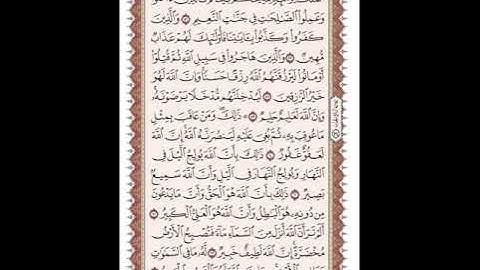 وَعَمِلُوا۟ ٱلصَّٰلِحَٰتِ فِى جَنَّٰتِ ٱلنَّعِيمِ ۝ وَٱلَّذِينَ
كَفَرُوا۟ وَكَذَّبُوا۟ بِـَٔايَٰتِنَا فَأُو۟لَٰٓئِكَ لَهُمْ عَذَابٌ
مُّهِينٌ ۝ وَٱلَّذِينَ هَاجَرُوا۟ فِى سَبِيلِ ٱللَّهِ ثُمَّ قُتِلُوٓا۟
أَوْ مَاتُوا۟ لَيَرْزُقَنَّهُمُ ٱللَّهُ رِزْقًا حَسَنًا وَإِنَّ ٱللَّهَ لَهُوَ
خَيْرُ ٱلرَّٰزِقِينَ ۝ لَيُدْخِلَنَّهُم مُّدْخَلًا يَرْضَوْنَهُۥ
وَإِنَّ ٱللَّهَ لَعَلِيمٌ حَلِيمٌ ۝ ذَٰلِكَ وَمَنْ عَاقَبَ بِمِثْلِ
مَا عُوقِبَ بِهِۦ ثُمَّ بُغِىَ عَلَيْهِ لَيَنصُرَنَّهُ ٱللَّهُ إِنَّ ٱللَّهَ
لَعَفُوٌّ غَفُورٌ ۝ ذَٰلِكَ بِأَنَّ ٱللَّهَ يُولِجُ ٱلَّيْلَ فِى
ٱلنَّهَارِ وَيُولِجُ ٱلنَّهَارَ فِى ٱلَّيْلِ وَأَنَّ ٱللَّهَ سَمِيعٌۢ
بَصِيرٌ ۝ ذَٰلِكَ بِأَنَّ ٱللَّهَ هُوَ ٱلْحَقُّ وَأَنَّ مَا يَدْعُونَ
مِن دُونِهِۦ هُوَ ٱلْبَٰطِلُ وَأَنَّ ٱللَّهَ هُوَ ٱلْعَلِىُّ ٱلْكَبِيرُ ۝
أَلَمْ تَرَ أَنَّ ٱللَّهَ أَنزَلَ مِنَ ٱلسَّمَآءِ مَآءً فَتُصْبِحُ ٱلْأَرْضُ
مُخْضَرَّةً إِنَّ ٱللَّهَ لَطِيفٌ خَبِيرٌ ۝ لَّهُۥ مَا فِى ٱلسَّمَٰوَٰتِ